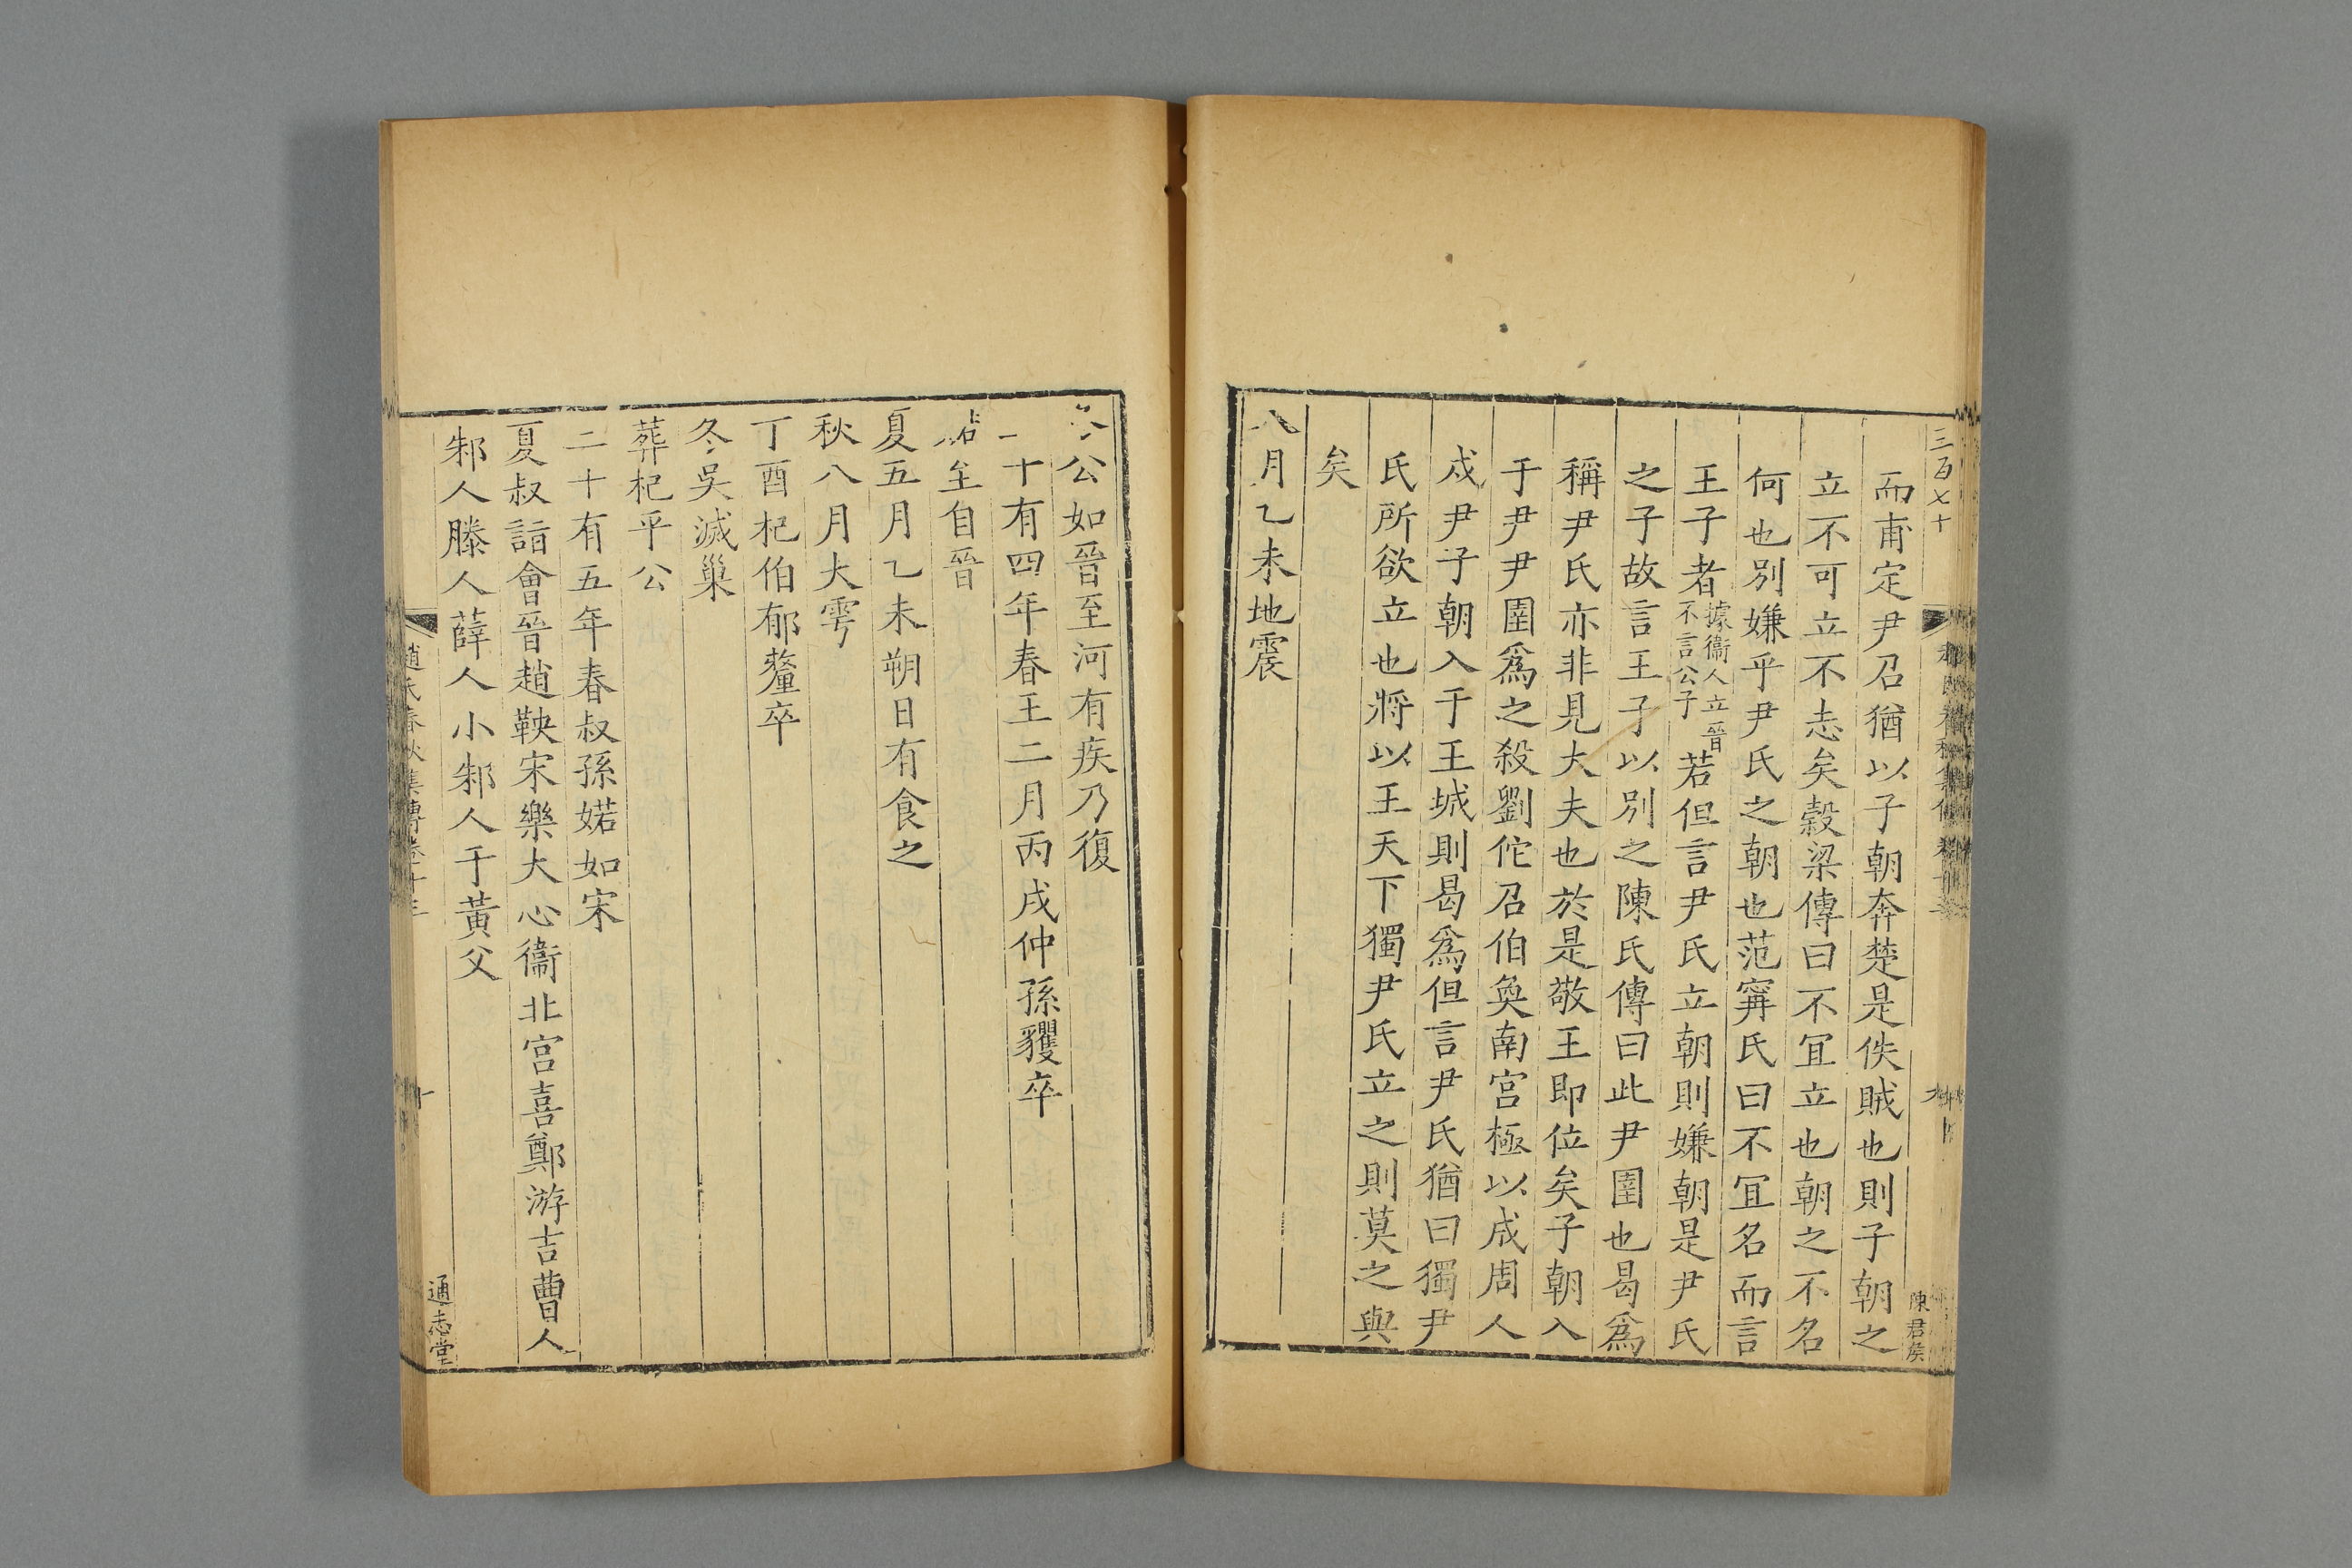 三百七十
而甫定尹召猶以子朝奔楚是佚賊也則子朝之
立不可立不志矣穀梁傳曰不冝立也朝之不名
何也別嫌乎尹氏之朝也范寗氏曰不冝名而言
王子者據衞人立晉不言公子若但言尹氏立朝則嫌朝是尹氏
之子故言王子以別之陳氏傳曰此尹圉也曷爲
稱尹氏亦非見大夫也於是敬王即位矣子朝入
于尹尹圉爲之殺劉佗召伯奐南宮極以成周人
戍尹子朝入于王城則曷爲但言尹氏猶曰獨尹
氏所欲立也將以王天下獨尹氏立之則莫之與
矣
八月乙未地震
陳君矦
公如晉至河有疾乃復
十有四年春王二月丙戌仲孫貜卒
婼至自晉
夏五月乙未朔日有食之
秋八月大雩
丁酉杞伯郁釐卒
冬吳滅巢
葬杞平公
二十有五年春叔孫婼如宋
夏叔詣會晉趙鞅宋樂大心衞北宮喜鄭游吉曹人
邾人滕人薛人小邾人于黃父
趙氏春秋集傳卷十三
十
通志堂